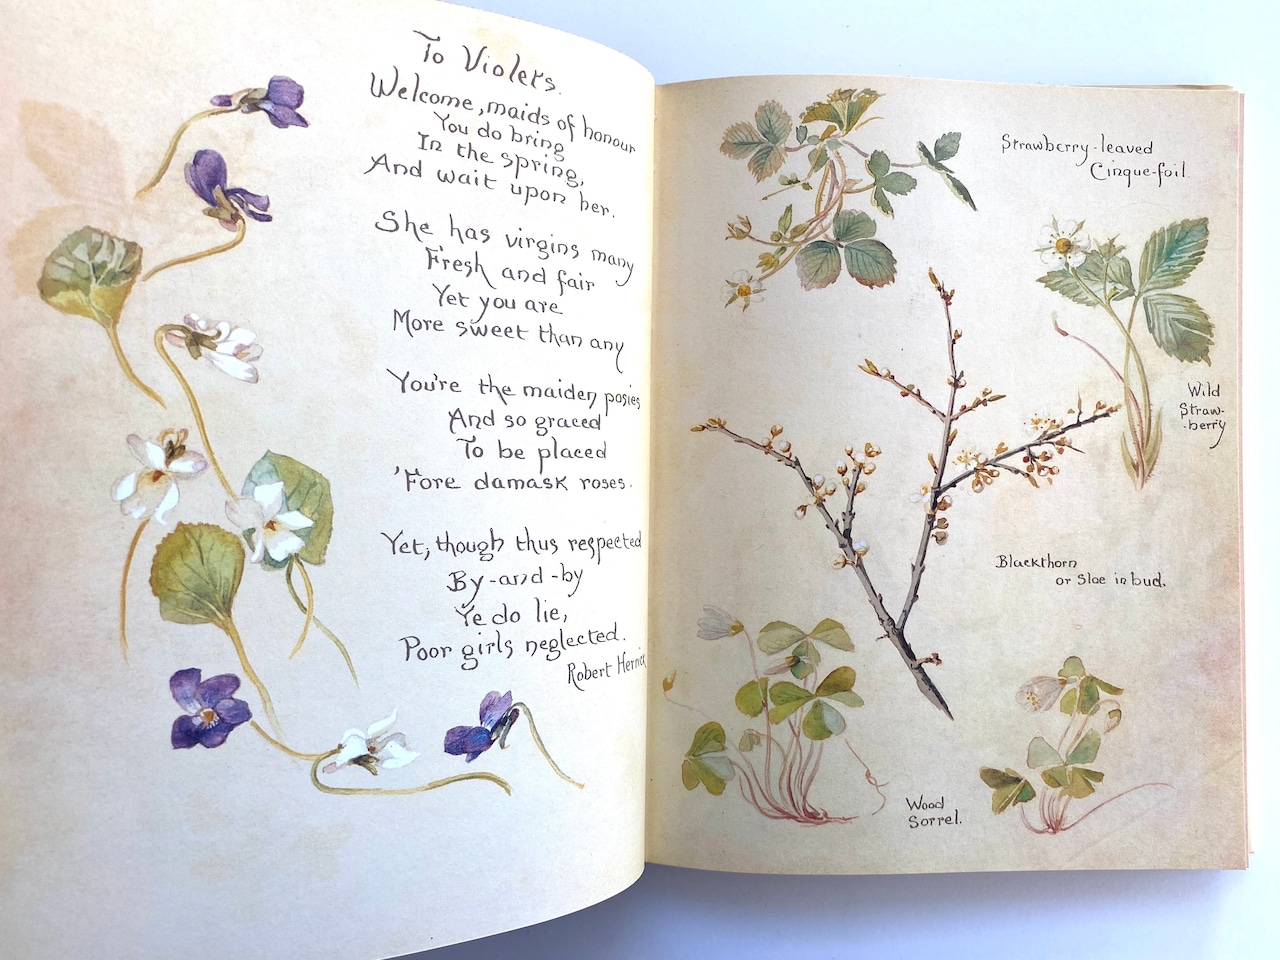 To Violets.
Welcome, maids of honour
You do bring
In the spring,
And wait upon her.
She has virgins many
Fresh and fair
Yet you are
More sweet than any
You're the maiden posies
And so graced
To be placed
'Fore damask roses.
Yet, though thus respected
By-and-by
Ye do lie,
Poor girls neglected.
Robert Herrick
Strawberry-leaved
Cinque-foil.
Wild
Straw-
-berry
Blackthorn
or Sloe in bud.
Wood
Sorrel.